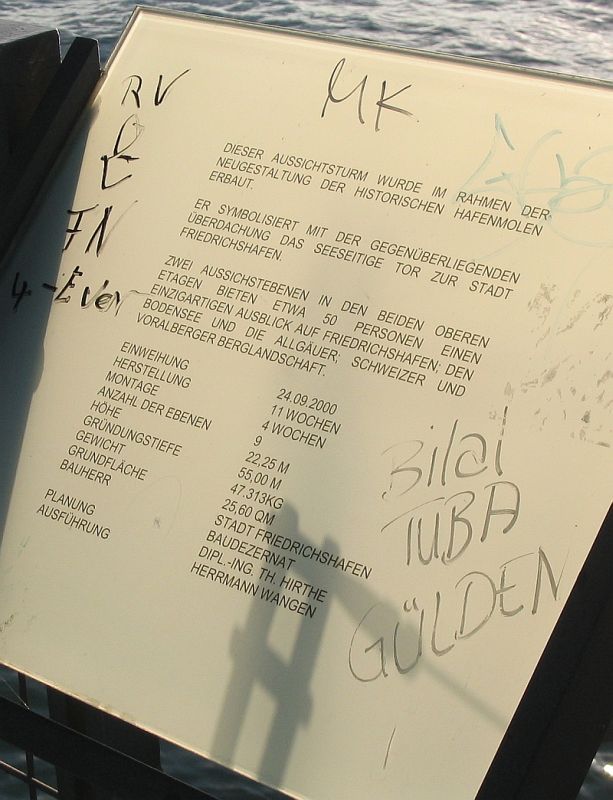 MK
RV
JN
4-Ever
DIESER AUSSICHTSTURM WURDE IM RAHMEN DER
NEUGESTALTUNG DER HISTORISCHEN HAFENMOLEN
ERBAUT.
ER SYMBOLISIERT MIT DER GEGENÜBERLIEGENDEN
ÜBERDACHUNG DAS SEESEITIGE TOR ZUR STADT
FRIEDRICHSHAFEN.
ZWEI AUSSICHSTEBENEN IN DEN BEIDEN OBEREN
ETAGEN BIETEN ETWA 50 PERSONEN EINEN
EINZIGARTIGEN AUSBLICK AUF FRIEDRICHSHAFEN; DEN
BODENSEE UND DIE ALLGÄUER; SCHWEIZER UND
VORALBERGER BERGLANDSCHAFT.
EINWEIHUNG 24.09.2000
HERSTELLUNG 11 WOCHEN
MONTAGE 4 WOCHEN
ANZAHL DER EBENEN 9
HÖHE 22,25 M
GRÜNDUNGSTIEFE 55,00 M
GEWICHT 47.313KG
GRUNDFLÄCHE 25,60 QM
BAUHERR STADT FRIEDRICHSHAFEN
BAUDEZERNAT
PLANUNG DIPL.-ING. TH. HIRTHE
AUSFÜHRUNG HERRMANN WANGEN
Bilai
TUBA
GÜLDEN